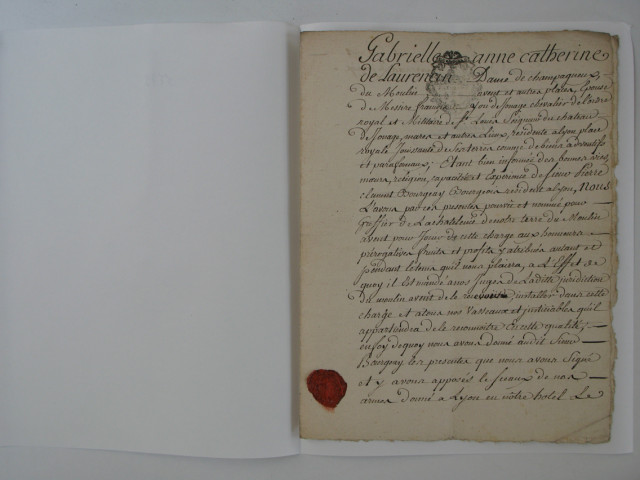 Gabrielle anne catherine
de Laurencin Dame de champagneux,
du Moulin avent et autres places, Epouse
de Messire françois ayou de Jonage chevalier de l'ordre
royal et Militaire de St Louis Seigneur du chateau
de Jonage, et autres Lieux, residente a lyon place
royale Jouissante de Ses
et parafernaux; Etant bien informée des bonnes vies,
moeurs, religion, capacité et experience de Sieur Pierre
clement Bourgeay Bourgeois residant a lyon, Nous
L'avons par ces presentes pourvu et nommé pour
Greffier de La chatelenie de notre terre du Moulin
avent pour Jouir de cette charge aux honneurs
prérogatives fruits et profits y attribués autant et
pendant letems quil nous plaira, a L'Effet de
quoy il Est mandé a nos Juges de Laditte Jurisdiction
du moulin avent de le recevoir, installer dans cette
charge et a tous nos Vassaux et justiciables qu'il
appartiendra de le reconnoitre En cette qualité;
en foy de quoy nous avons donné audit Sieur
Bourgeay les presentes que nous avons Signé
et y avons apposés le sceau de nos
armes donné a Lyon en notre hotel Le